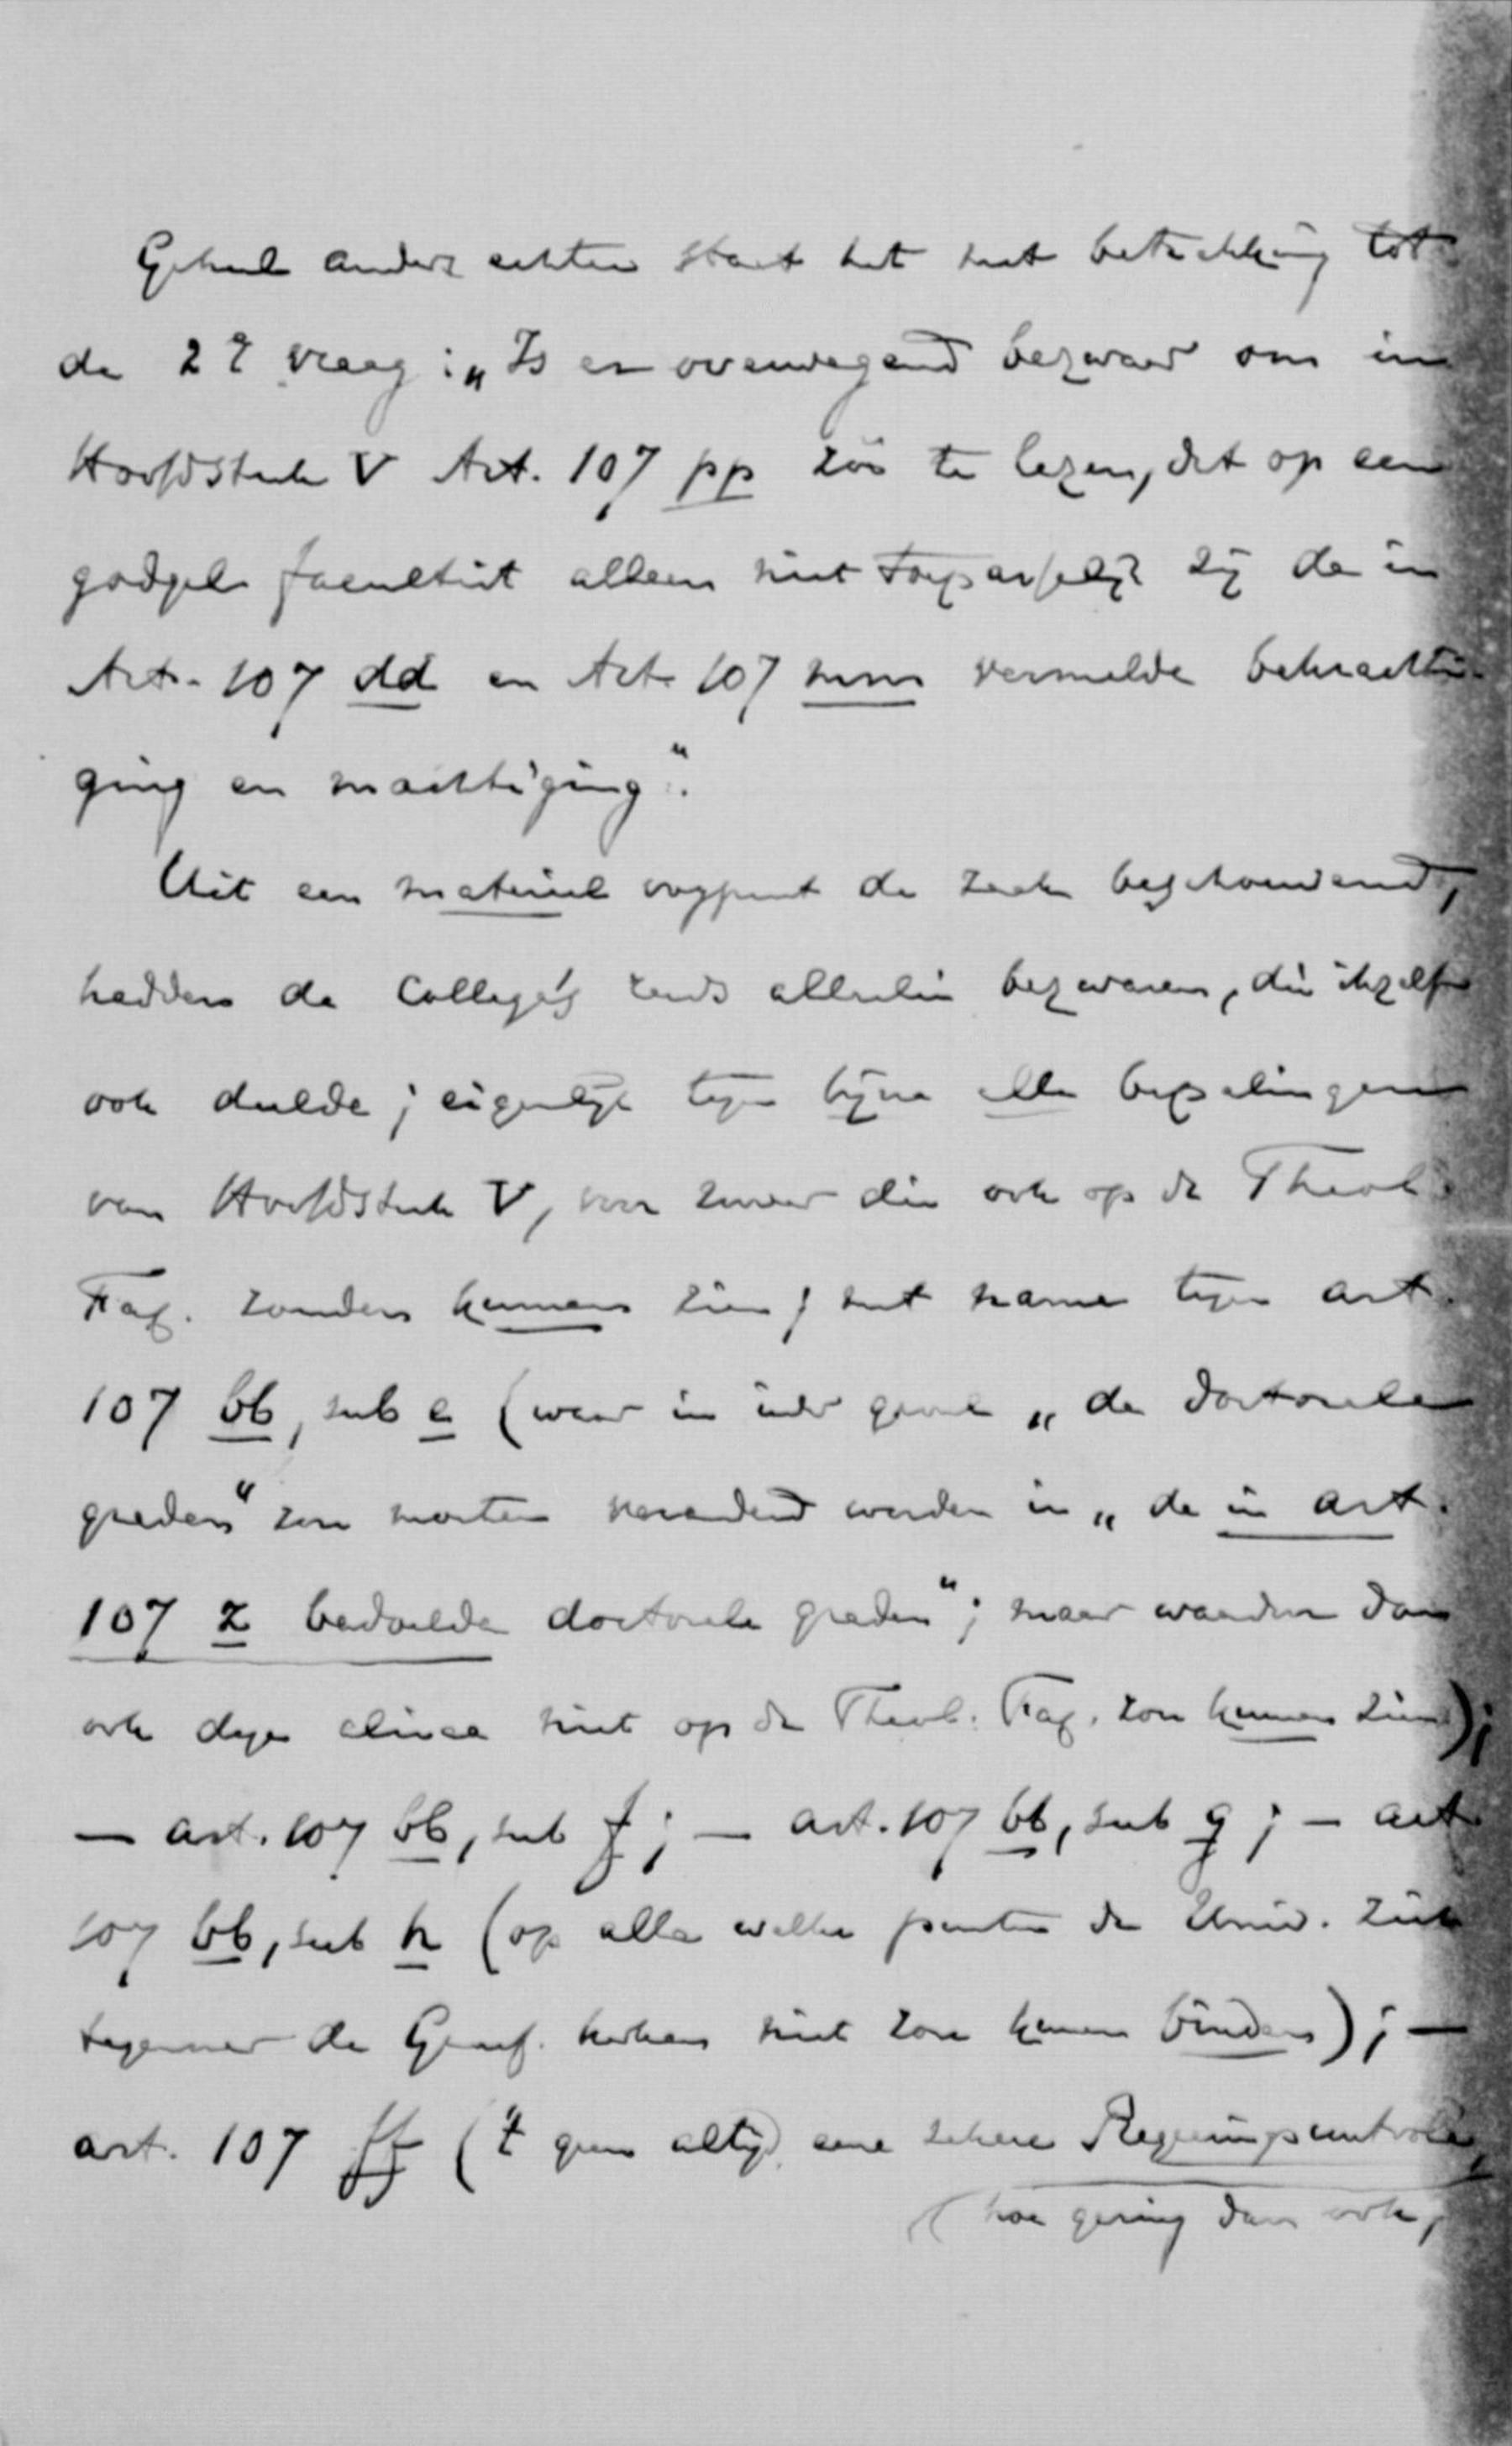 Geheel anders echter staat het met betrekking tot
de 2e vraag: „Is er overwegend bezwaar om in
Hoofdstuk V Art. 107 pp zóó te lezen, dat op een
godgel. faculteit alleen niet toepasselijk zij de in
Art. 107 dd en Art. 107 mm vermelde bekrachti-
ging en machtiging".
Uit een materieel oogpunt de zaak beschouwend,
hadden de Collega's reeds allerlei bezwaren, die ikzelf
ook deelde; eigenlijk tegen bijna alle bepalingen
van Hoofdstuk V, voor zoover die ook op de Theol.
Fac. zouden kunnen zien; met name tegen art.
107 bb, sub e (waar in ieder geval „de doctorale
graden" zou moeten veranderd worden in „de in art.
107 z bedoelde doctorale graden"; maar waardoor dan
ook deze alinea niet op de Theol. Fac. zou kunnen zien);
— art. 107 bb, sub f; — art. 107 bb, sub g; — art
107 bb, sub h (op alle welke punten de Univ. zich
tegenover de Geref. kerken niet zou kunnen binden); —
art. 107 ff ('t geen altijd eene zekere Regeeringscontrole,
(hoe gering dan ook,